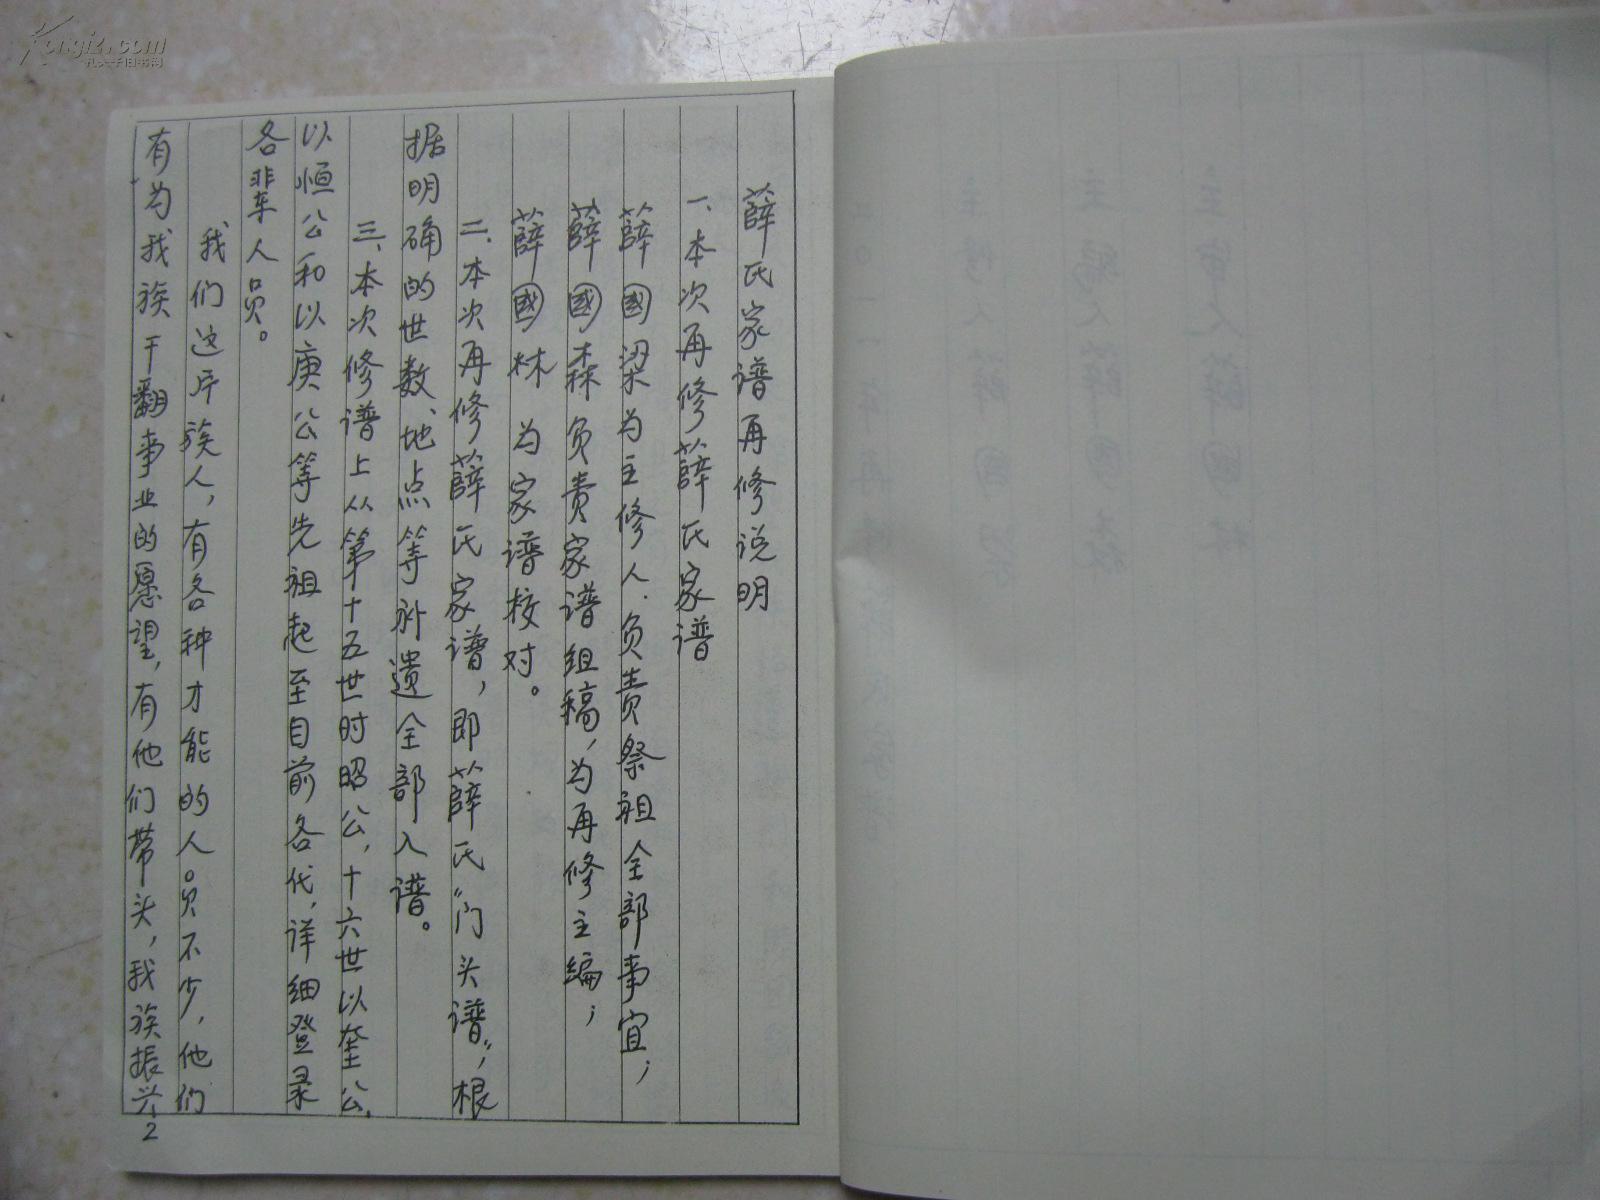 薛氏家谱再修说明
一、本次再修薛氏家谱
薛國梁为主修人.负责祭祖全部事宜；
薛國森负责家谱组稿，为再修主编；
薛國林 为家谱校对。
二、本次再修薛氏家谱，即薛氏“门头谱”，根
据明确的世数、地点等补遗全部入谱。
三、本次修谱上从第十五世时昭公，十六世以奎公、
以恒公和以庚公等先祖起至目前各代，详细登录
各辈人员。
我们这户族人，有各种才能的人员不少，他们
有为我族干翻事业的愿望，有他们带头，我族振兴
2
kongfz.com
孔夫子旧书网